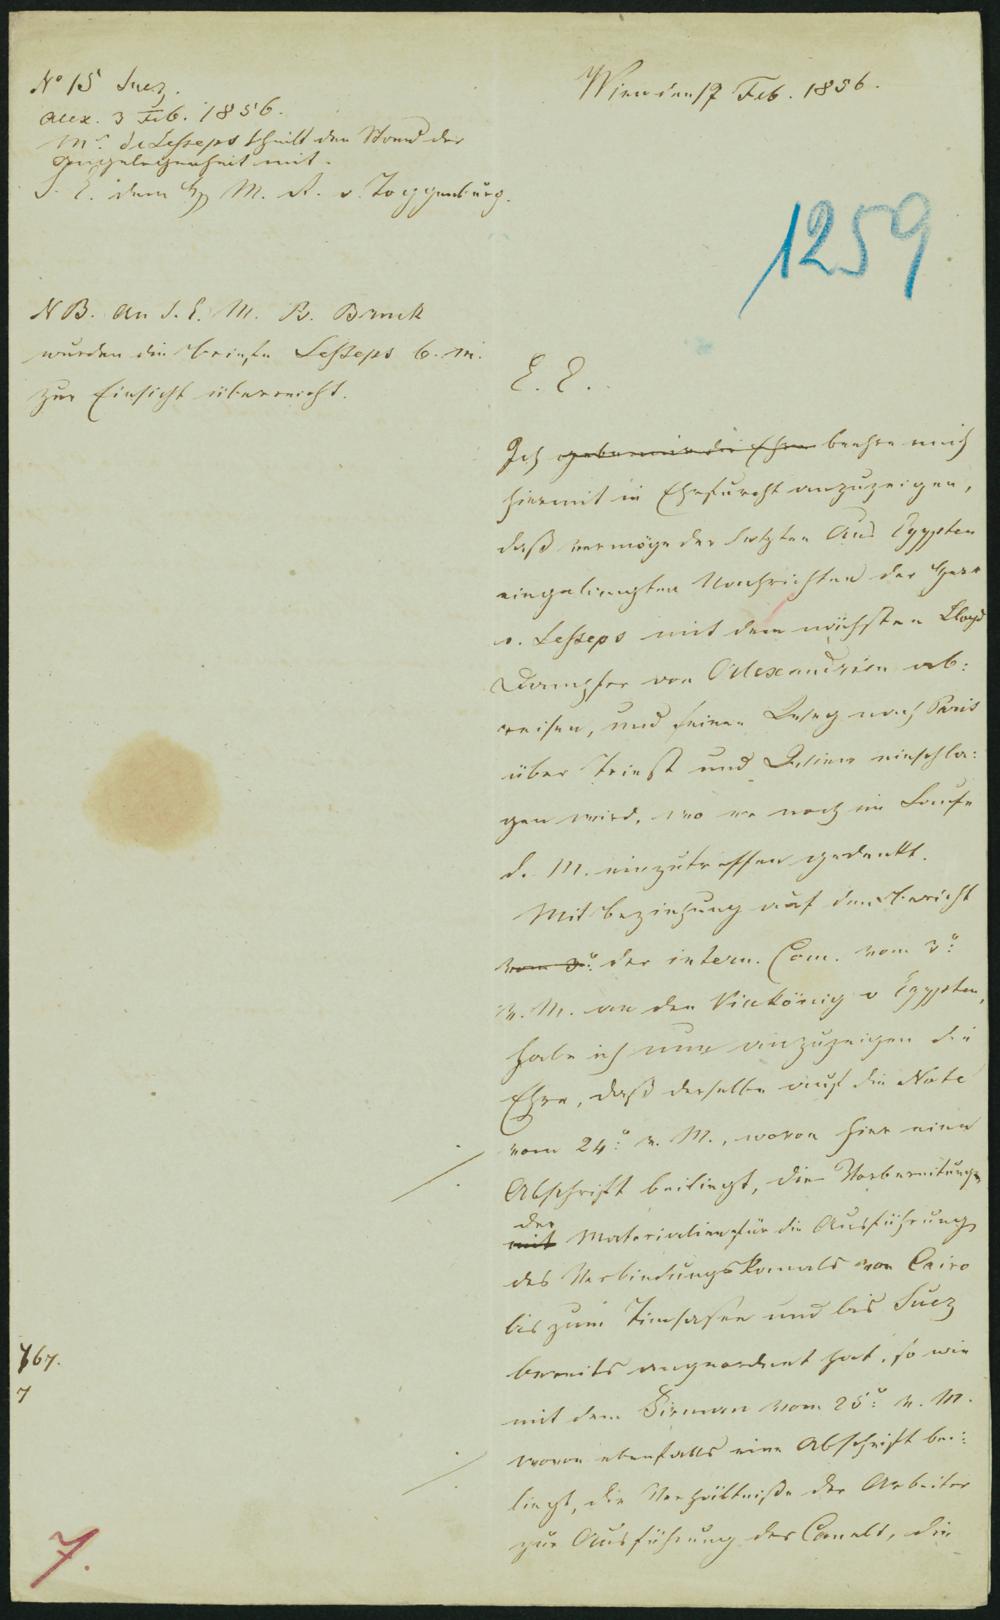 No 15 Suez.
Alex. 3 Feb. 1856.
Mr. de Lesseps theilt den Stand der
Angelegenheit mit.
S. E. dem H M. R. v. Toggenburg.
Wien den 17 Feb. 1856.
1259
NB. An S. E. M. B. Bruck
wurden die Briefe Lesseps b. m.
zur Einsicht überreicht.
E. E.
Ich gebe mir die Ehre beehre mich
hiermit in Ehrfurcht anzuzeigen,
daß vermöge der letzten Aus Egypten
eingelangten Nachrichten der Herr
v. Lesseps mit dem nächsten Lloyd
Dampfer von Alexandrien ab:
reisen, und seinen Weg nach Paris
über Triest und Wien einschla:
gen wird, wo er noch im Laufe
d. M. einzutreffen gedenkt.
Mit Beziehung auf den Bericht
vom 3: der intern. Com. vom 3:
v. M. an den Vicekönig v Egypten,
habe ich nun anzuzeigen die
Ehre, daß derselbe auf die Note
vom 24: v. M., wovon hier eine
Abschrift beiliegt, die Vorbereitungen
der
mit Materialien für die Ausführung
des Verbindungskanals von Cairo
bis zum Timsahsee und bis Suez
bereits angeordnet hat, so wie
mit dem Firman vom 25: v. M.
wovon ebenfalls eine Abschrift bei:
liegt, die Verhältniße der Arbeiter
zur Ausführung des Canals, die
767.
7
7.